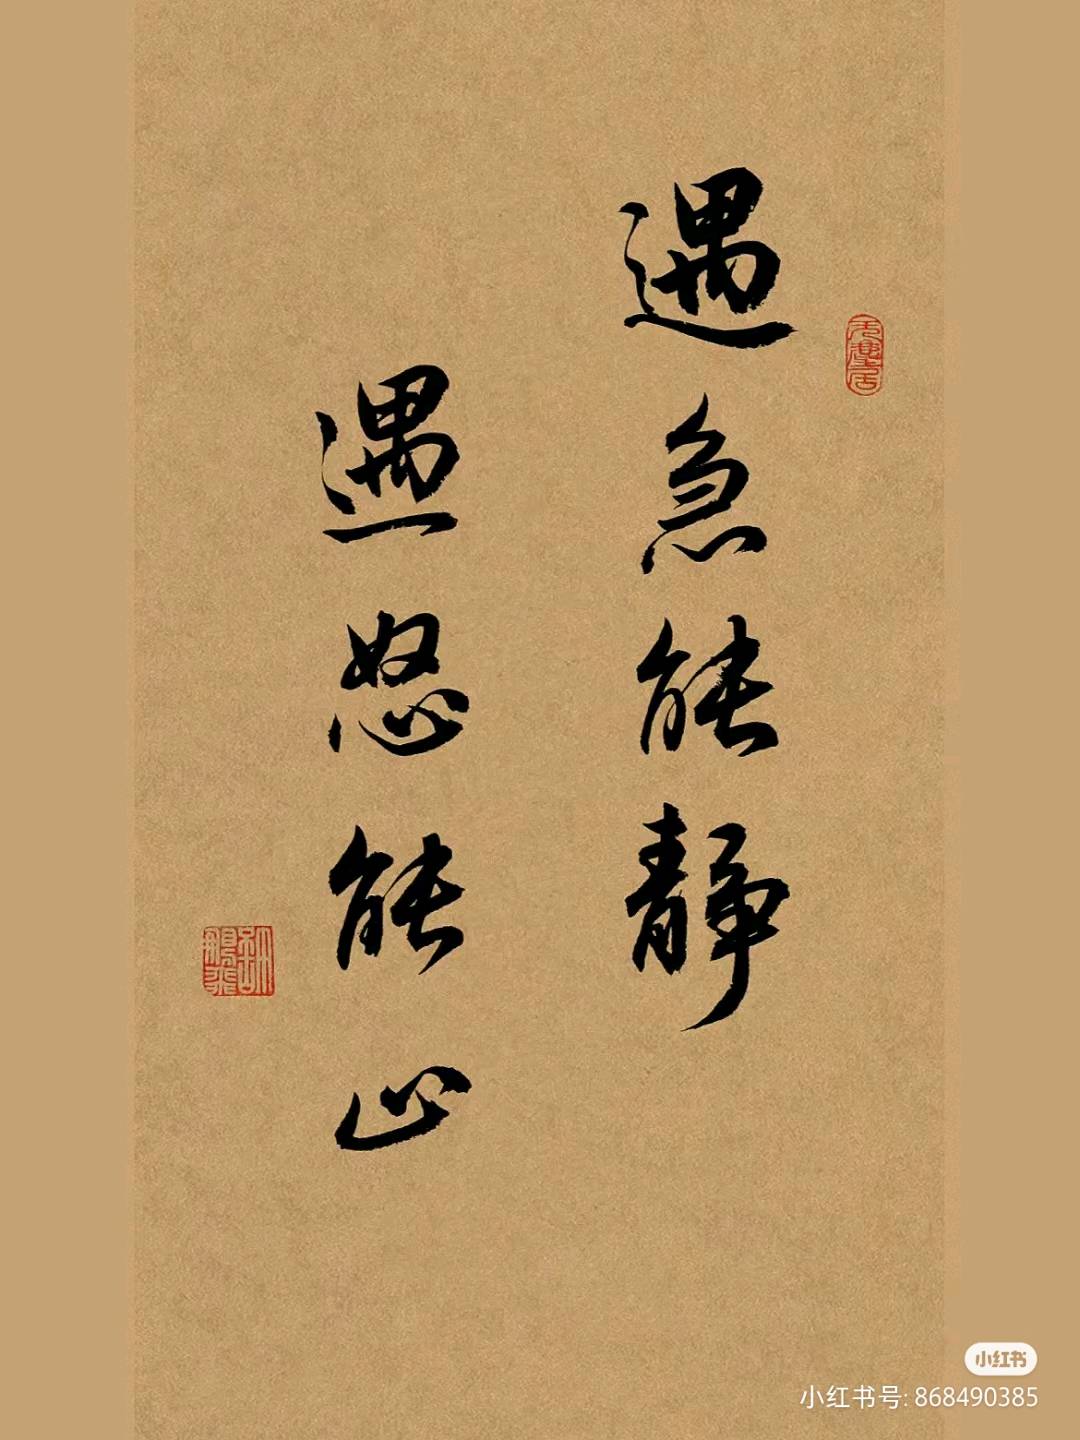 遇急能静
遇怒能止
小红书
小红书号: 868490385